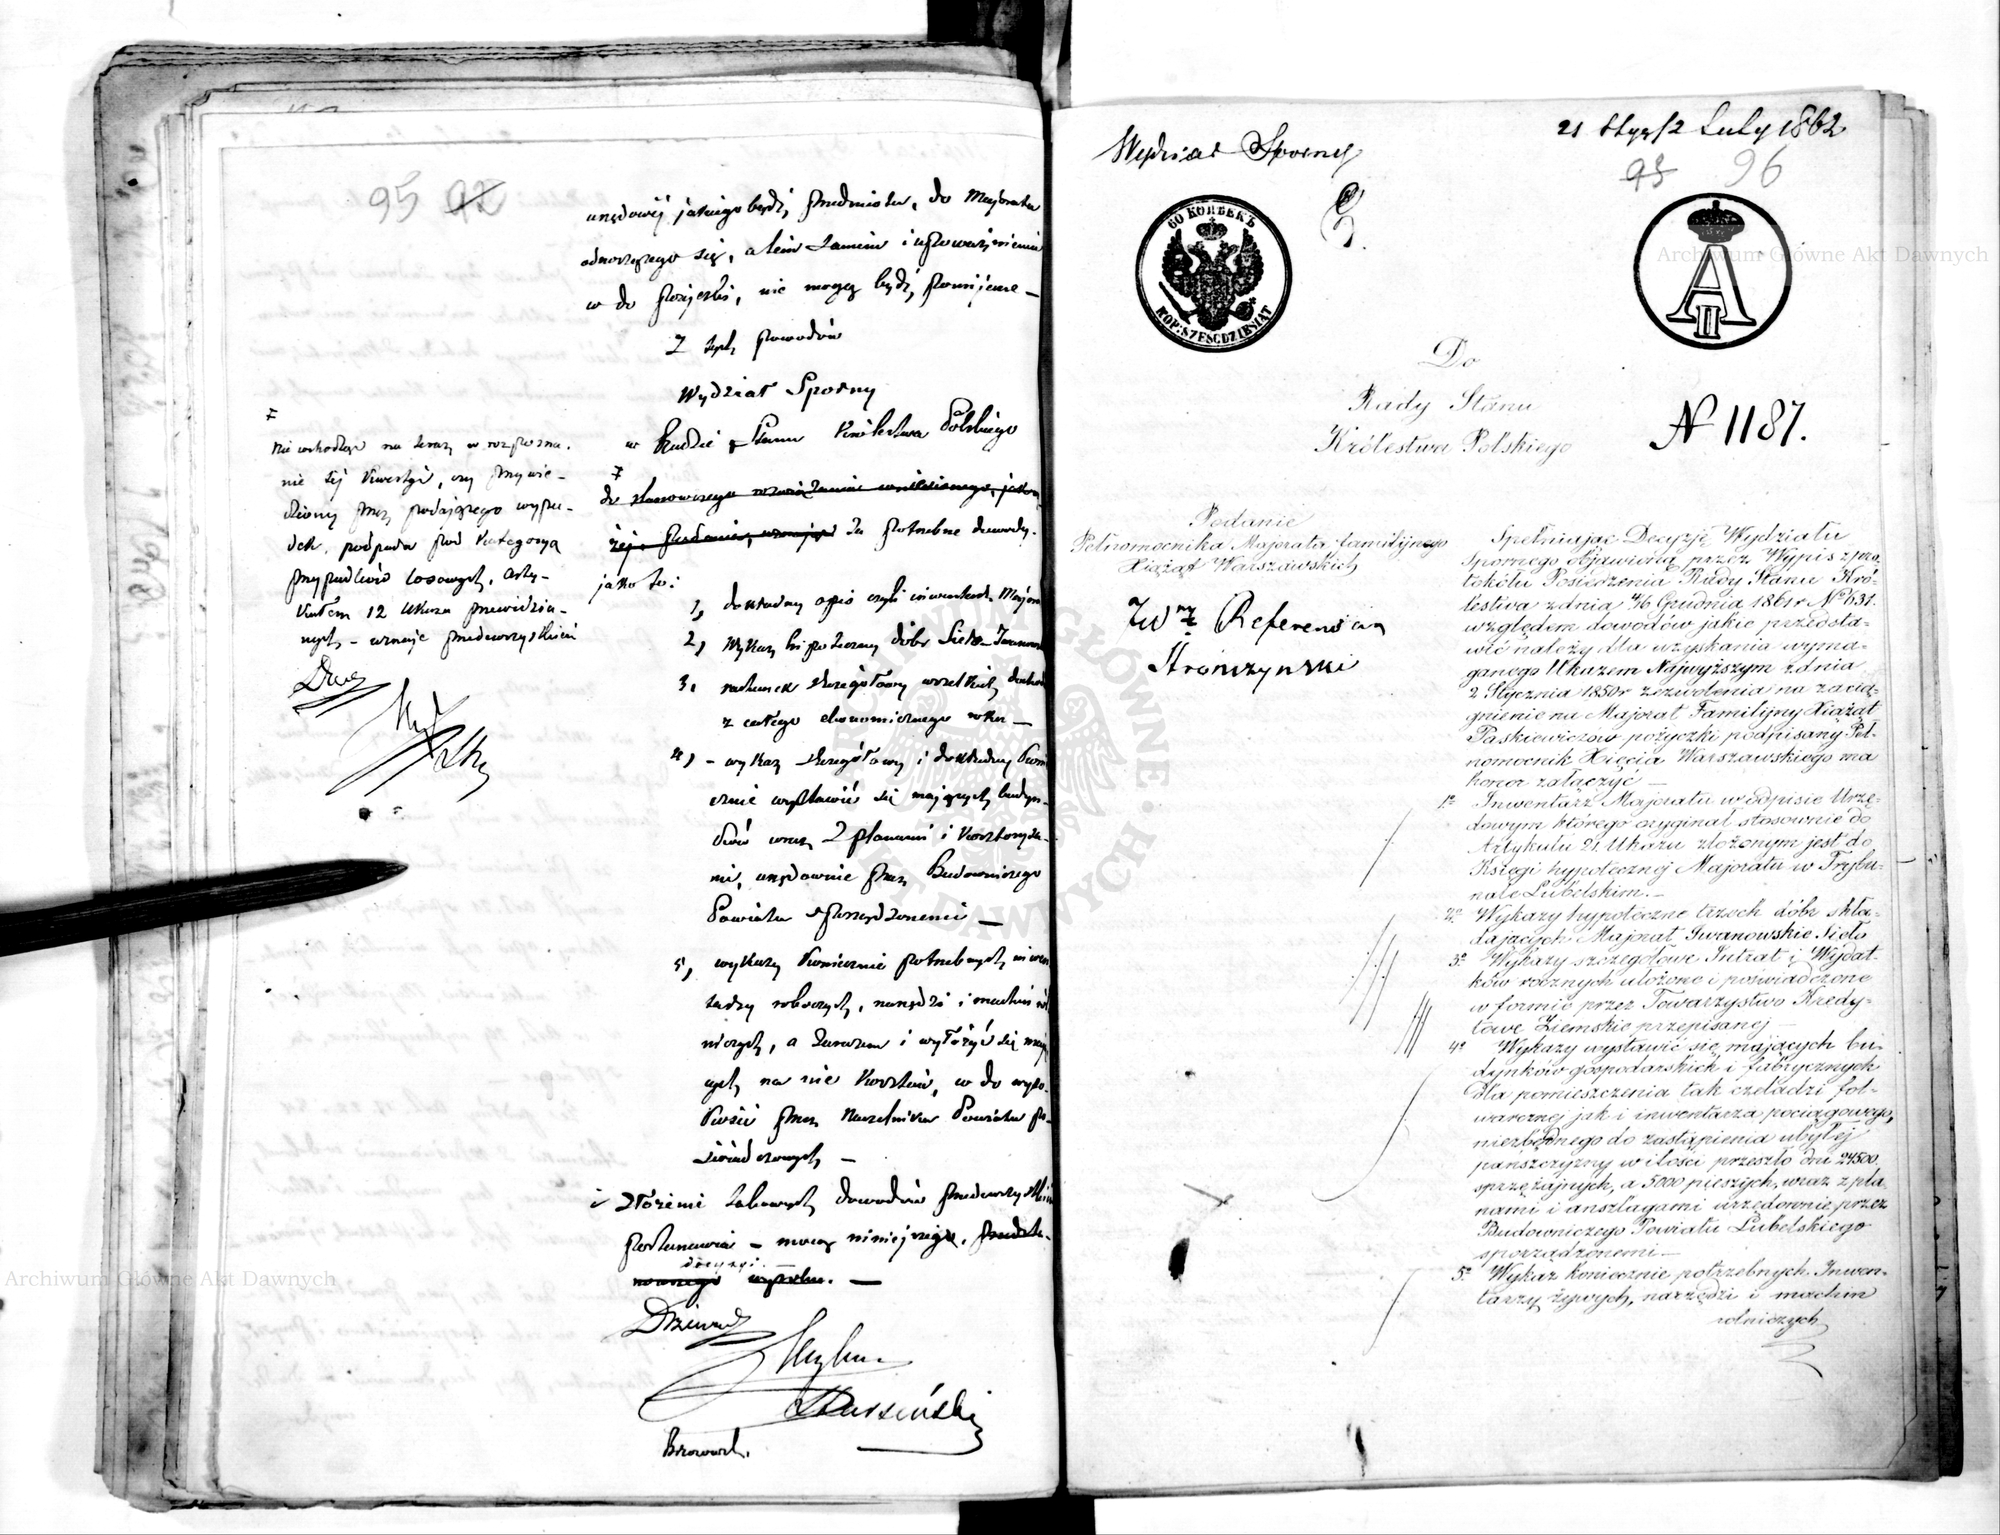 95 92
urzędowéj jakiego bądź przedmiotu, do Majoratu
odnoszącego się, a tém samém i upoważnienia
w do pożyczki, nie mogą bydź pominięte –
Z tych powodów
Wydział Sporny
w Radzie Stanu Królestwa Polskiego
do stanowczego
za potrzebne dowody,
jako to:
1, dokładny opis czyli inwentarz
2, Wykaz hipoteczny dóbr
3, rachunek szczegółowy wszelkich
z całego ekonomicznego roku –
4, – wykaz szczegółowy i dokładny
wystawić się mających budyn-
ków wraz z planami i kosztorysa-
mi, urzędownie przez Budowniczego
Powiatu sporządzonemi –
5, wykazy koniecznie potrzebnych
roboczych, narzędzi i machin
niczych, a zarazem i wyłożyć się
cych na nie kosztów, w do wyso-
kości przez Naczelnika Powiatu po-
świadczonych –
i złożenie takowych dowodów
postanawia – mocą niniejszego,
decyzyi. –
F
nie wchodząc na teraz w rozpozna-
nie téj kwestyi, czy przywie-
dziony przez podającego wypa-
dek, podpada pod kategoryą
przypadków losowych, arty-
kułem 12 Ukazu przewidzia-
nych – uznaje
Wydział Sporny
21 Stycz/2 Luty 1862
95 96
60 КОПѢЕКЪ
KOP: SZESĆDZIESIĄT
A II
Do
Rady Stanu
Królestwa Polskiego
N 1187.
Podanie
Pełnomocnika Majoratu familijnego
Xiążąt Warszawskich
Referendarz
Stronczynski
Spełniając Decyzję Wydziału
Spornego objawioną przez Wypis z pro-
tokółu Posiedzenia Rady Stanu Kró-
lestwa z dnia 4/16 Grudnia 1861 r № 631.
względem dowodów jakie przedsta-
wić należy dla uzyskania wyma-
ganego Ukazem Najwyższym z dnia
2 Stycznia 1850 r zezwolenia na zacią-
gnienie na Majorat Familijny Xiążąt
Paskiewiczów pożyczki podpisany Peł-
nomocnik Xięcia Warszawskiego ma
honor załączyć –
1º Inwentarz Majoratu w odpisie Urzę-
dowym którego oryginał stosownie do
Artykułu 21 Ukazu złożonym jest do
Księgi hypotecznej Majoratu w Trybu-
nale Lubelskim. –
2º Wykazy hypoteczne trzech dóbr skła-
dających Majorat Iwanowskie Sioło
3º Wykazy szczegółowe Intrat i Wydat-
ków rocznych ułożone i poświadczone
w formie przez Towarzystwo Kredy-
towe Ziemskie przepisanej –
4º Wykazy wystawić się mających bu-
dynków gospodarskich i fabrycznych
dla pomieszczenia tak czeladzi fol-
warcznej jak i inwentarza pociągowego,
niezbędnego do zastąpienia ubyłej
pańszczyzny w ilości przeszło dni 24500
sprzężajnych, a 5000 pieszych, wraz z pla-
nami i anszlagami urzędownie przez
Budowniczego Powiatu Lubelskiego
sporządzonemi –
5º Wykaz koniecznie potrzebnych Inwen-
tarzy żywych, narzędzi i machin
rolniczych
Archiwum Główne Akt Dawnych
Archiwum Główne Akt Dawnych
ARCHIWUM GŁÓWNE AKT DAWNYCH